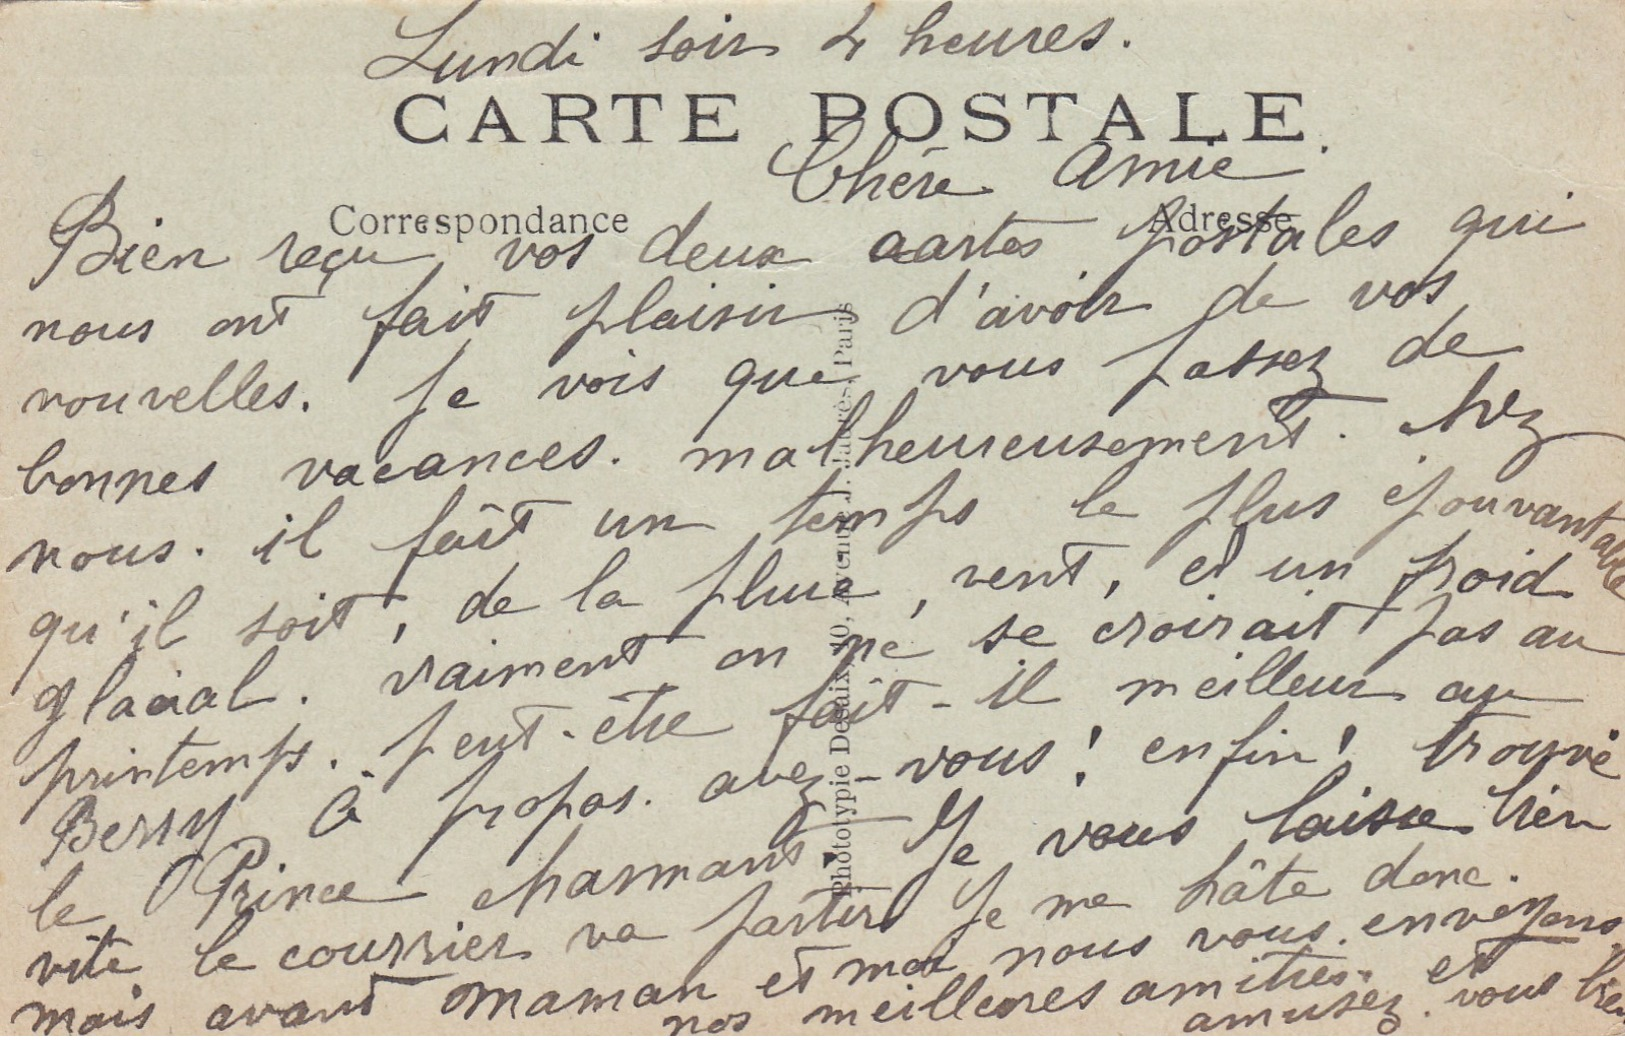 Lundi soir 4 heures.
CARTE POSTALE
Chère Amie
Correspondance
Adresse
Bien reçu vos deux cartes postales qui
nous ont fait plaisir d'avoir de vos
nouvelles. Je vois que vous passez de
bonnes vacances. malheureusement. chez
nous. il fait un temps le plus épouvantable
qu'il soit, de la pluie, vent, et un froid
glacial. vraiment on ne se croirait pas au
printemps. peut-être fait-il meilleur au
Berry à propos. avez-vous! enfin! trouvé
le Prince charmant Je vous laisse bien
vite le courrier va partir Je me hâte donc.
mais avant maman et moi nous vous envoyons
nos meilleures amitiés. et
amusez. vous bien
Phototypie Desaix, 40, Avenue J. Jaurès, Paris